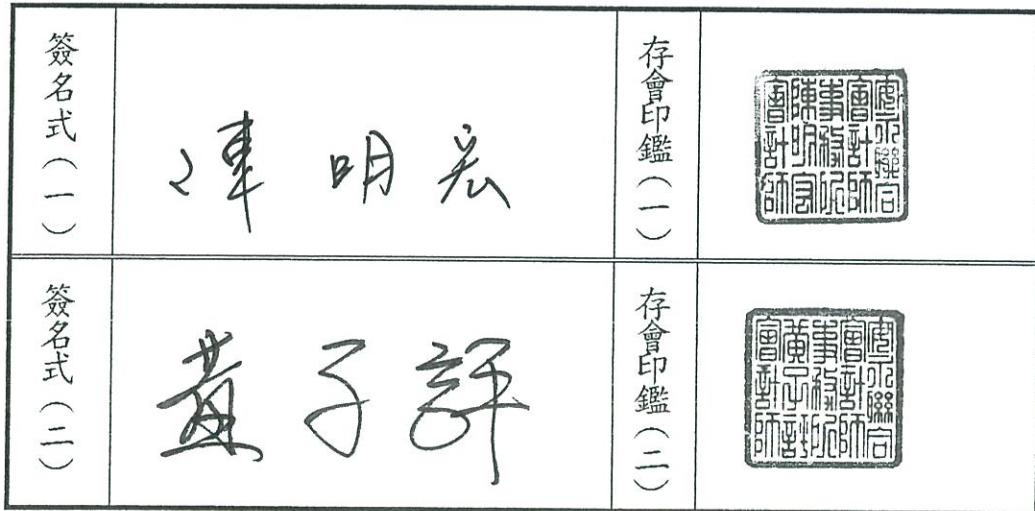 簽名式(一)
陳明宏
存會印鑑(一)
安永聯合會計師事務所陳明宏會計師
簽名式(二)
黃子評
存會印鑑(二)
安永聯合會計師事務所黃子評會計師